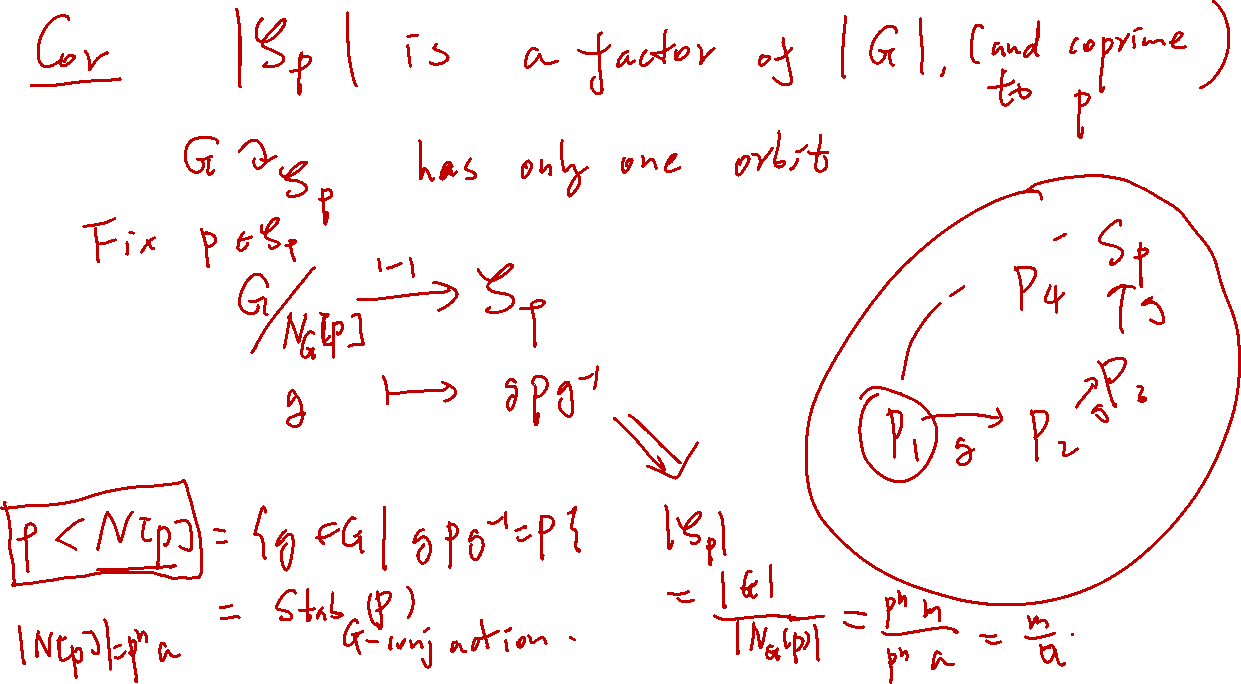 Cor |𝒮ₚ| is a factor of |G|. (and coprime to p)
G ↷ 𝒮ₚ has only one orbit
Fix P ∈ 𝒮ₚ
G/N_G[P] —1-1→ 𝒮ₚ
g ↦ gPg⁻¹
P < N[P] = {g ∈ G | gPg⁻¹ = P}
= Stab_{G-conj action}(P).
|N[P]| = pⁿa
|𝒮ₚ|
= |G| / |N_G(P)| = pⁿ m / pⁿ a = m/a.
P₄ 𝒮ₚ
↑ g
P₁ —g→ P₂ ↗g P₃